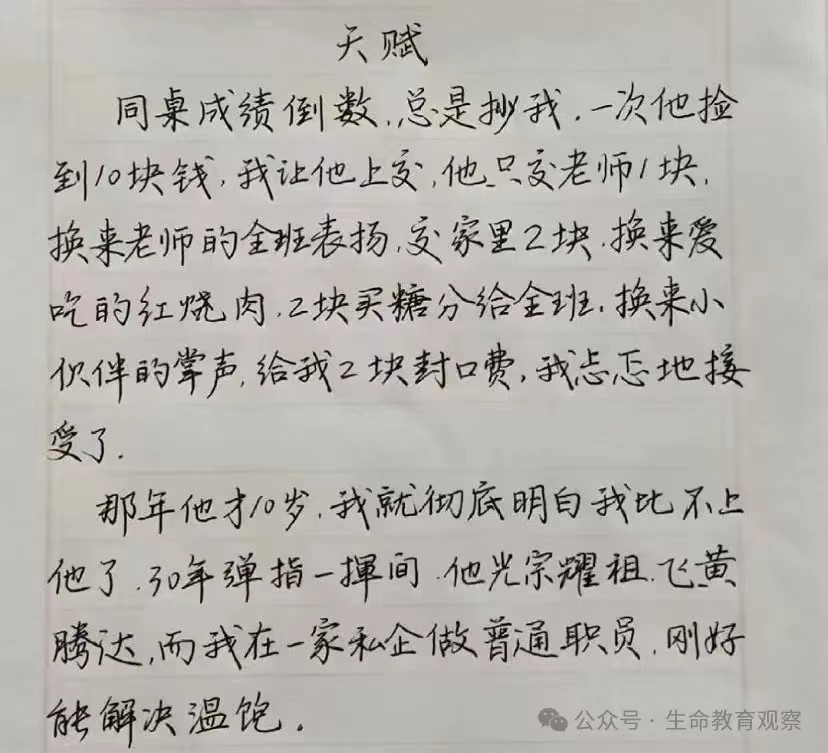 天赋
同桌成绩倒数,总是抄我.一次他捡
到10块钱,我让他上交,他只交老师1块,
换来老师的全班表扬,交家里2块.换来爱
吃的红烧肉,2块买糖分给全班.换来小
伙伴的掌声,给我2块封口费,我忐忑地接
受了.
那年他才10岁,我就彻底明白我比不上
他了.30年弹指一挥间.他光宗耀祖.飞黄
腾达,而我在一家私企做普通职员,刚好
能解决温饱.
公众号·生命教育观察